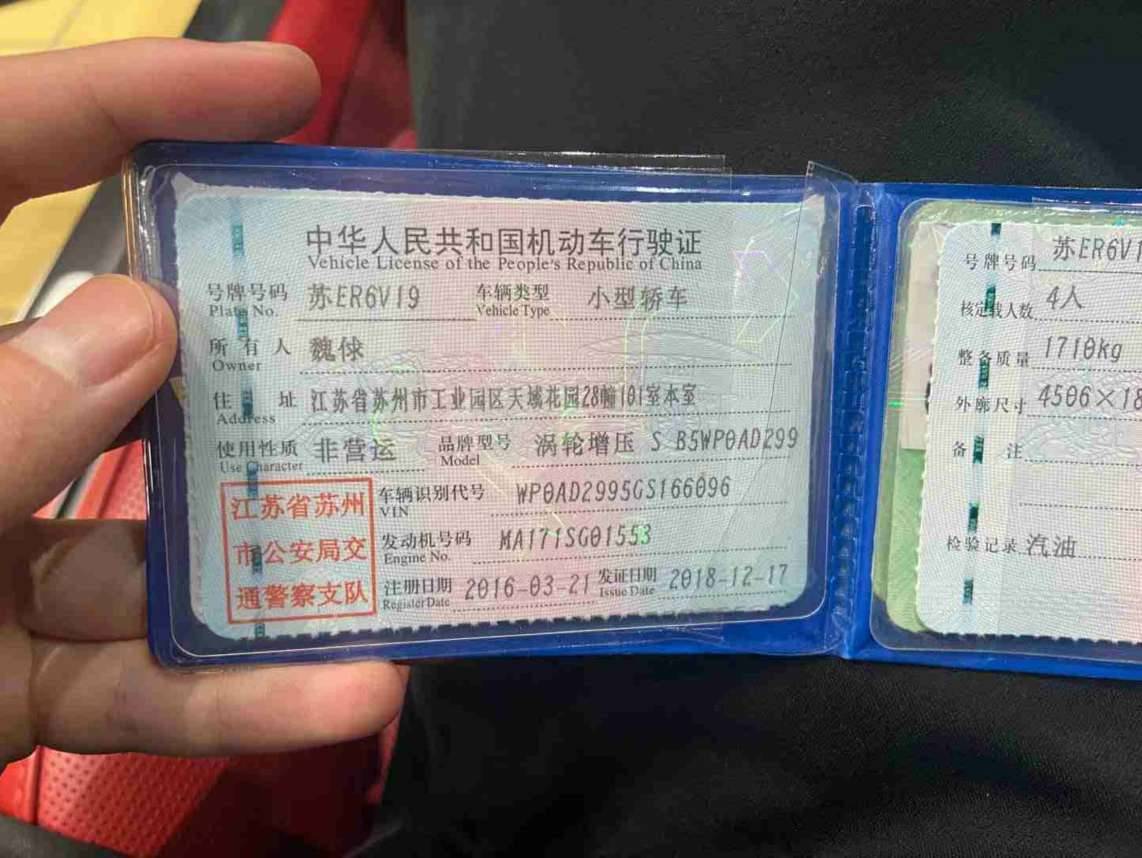 中华人民共和国机动车行驶证
Vehicle License of the People's Republic of China
号牌号码 苏ER6V19 车辆类型 小型轿车
Plate No. Vehicle Type
所有人 魏俅
Owner
住址 江苏省苏州市工业园区天域花园28幢101室本室
Address
使用性质 非营运 品牌型号 涡轮增压 S B5WP0AD299
Use Character Model
江苏省苏州
市公安局交
通警察支队
车辆识别代号 WP0AD2995GS166096
VIN
发动机号码 MA171SG01553
Engine No.
注册日期 2016-03-21 发证日期 2018-12-17
Register Date Issue Date
号牌号码 苏ER6V1
核定载人数 4人
整备质量 1710kg
外廓尺寸 4506×18
备注
检验记录 汽油